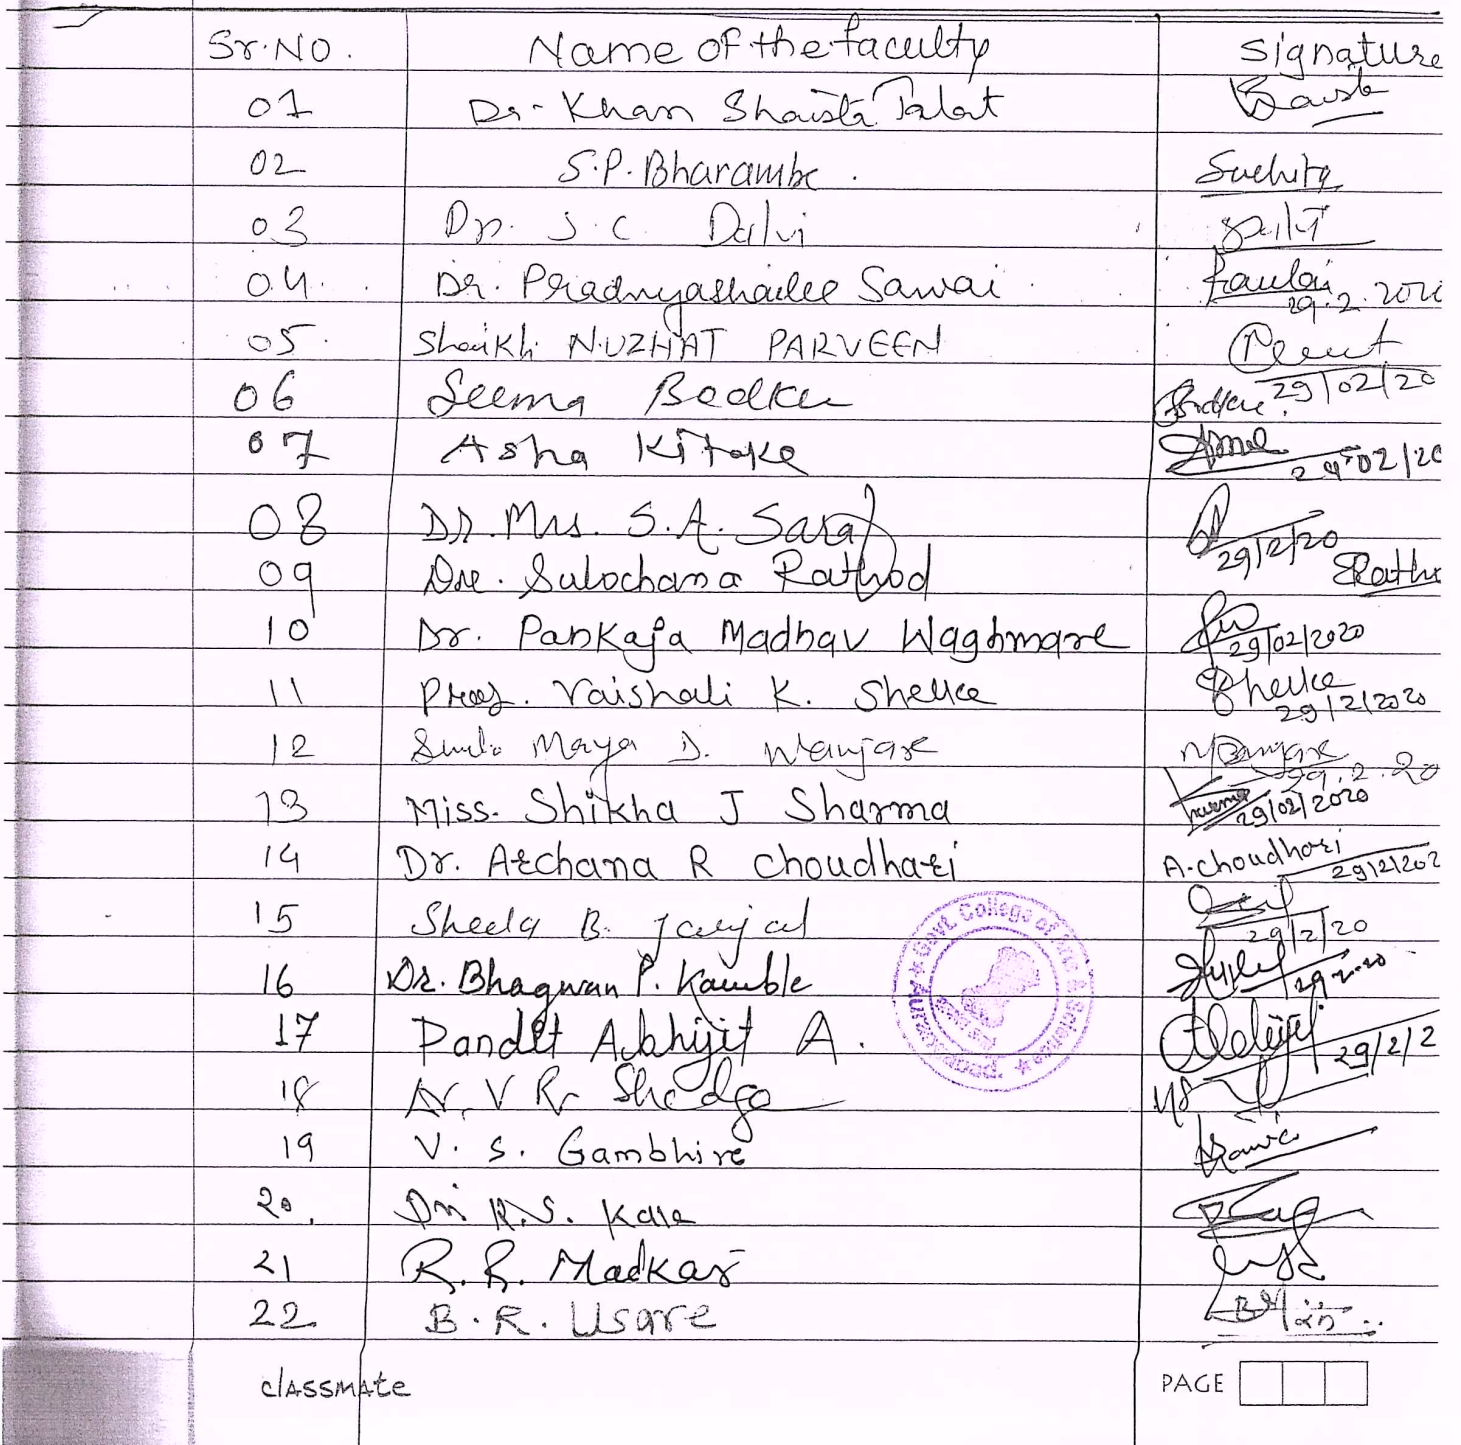 Sr.No. Name of the faculty Signature
01 Dr. Khan Shaista Talat
02 S.P. Bharambe . Suchita
03 Dr. S.C. Dalvi
04. Dr. Pradnyashailee Sawai 29.2.202
05. Shaikh NUZHAT PARVEEN
29/02/20
06 Seema Bodkhe
07 Asha Kitake
29-02/20
08 DR. Mrs. S.A. Saraf 29/2/20
09 Dr. Sulochana Rathod Ratho
10 Dr. Pankaja Madhav Waghmare 29/02/2020
11 Prof. Vaishali K. Shelke Shelke
29/2/2020
12 Maya D. Wanjare
29.2.20
13 Miss. Shikha J Sharma 29/02/2020
14 Dr. Archana R Choudhari A.choudhari
29/2/202
15 Sheela B. 29/2/20
16 Dr. Bhagwan P. Kamble
17 Pandit Abhijit A. 29/2/2
18 Dr. V R. Shedge
19 V. S. Gambhire
20. Dr. K.S. Kale
21 R.R. Madkar
22 B.R. Usare
Govt. College of Arts & Science Aurangabad
classmate PAGE